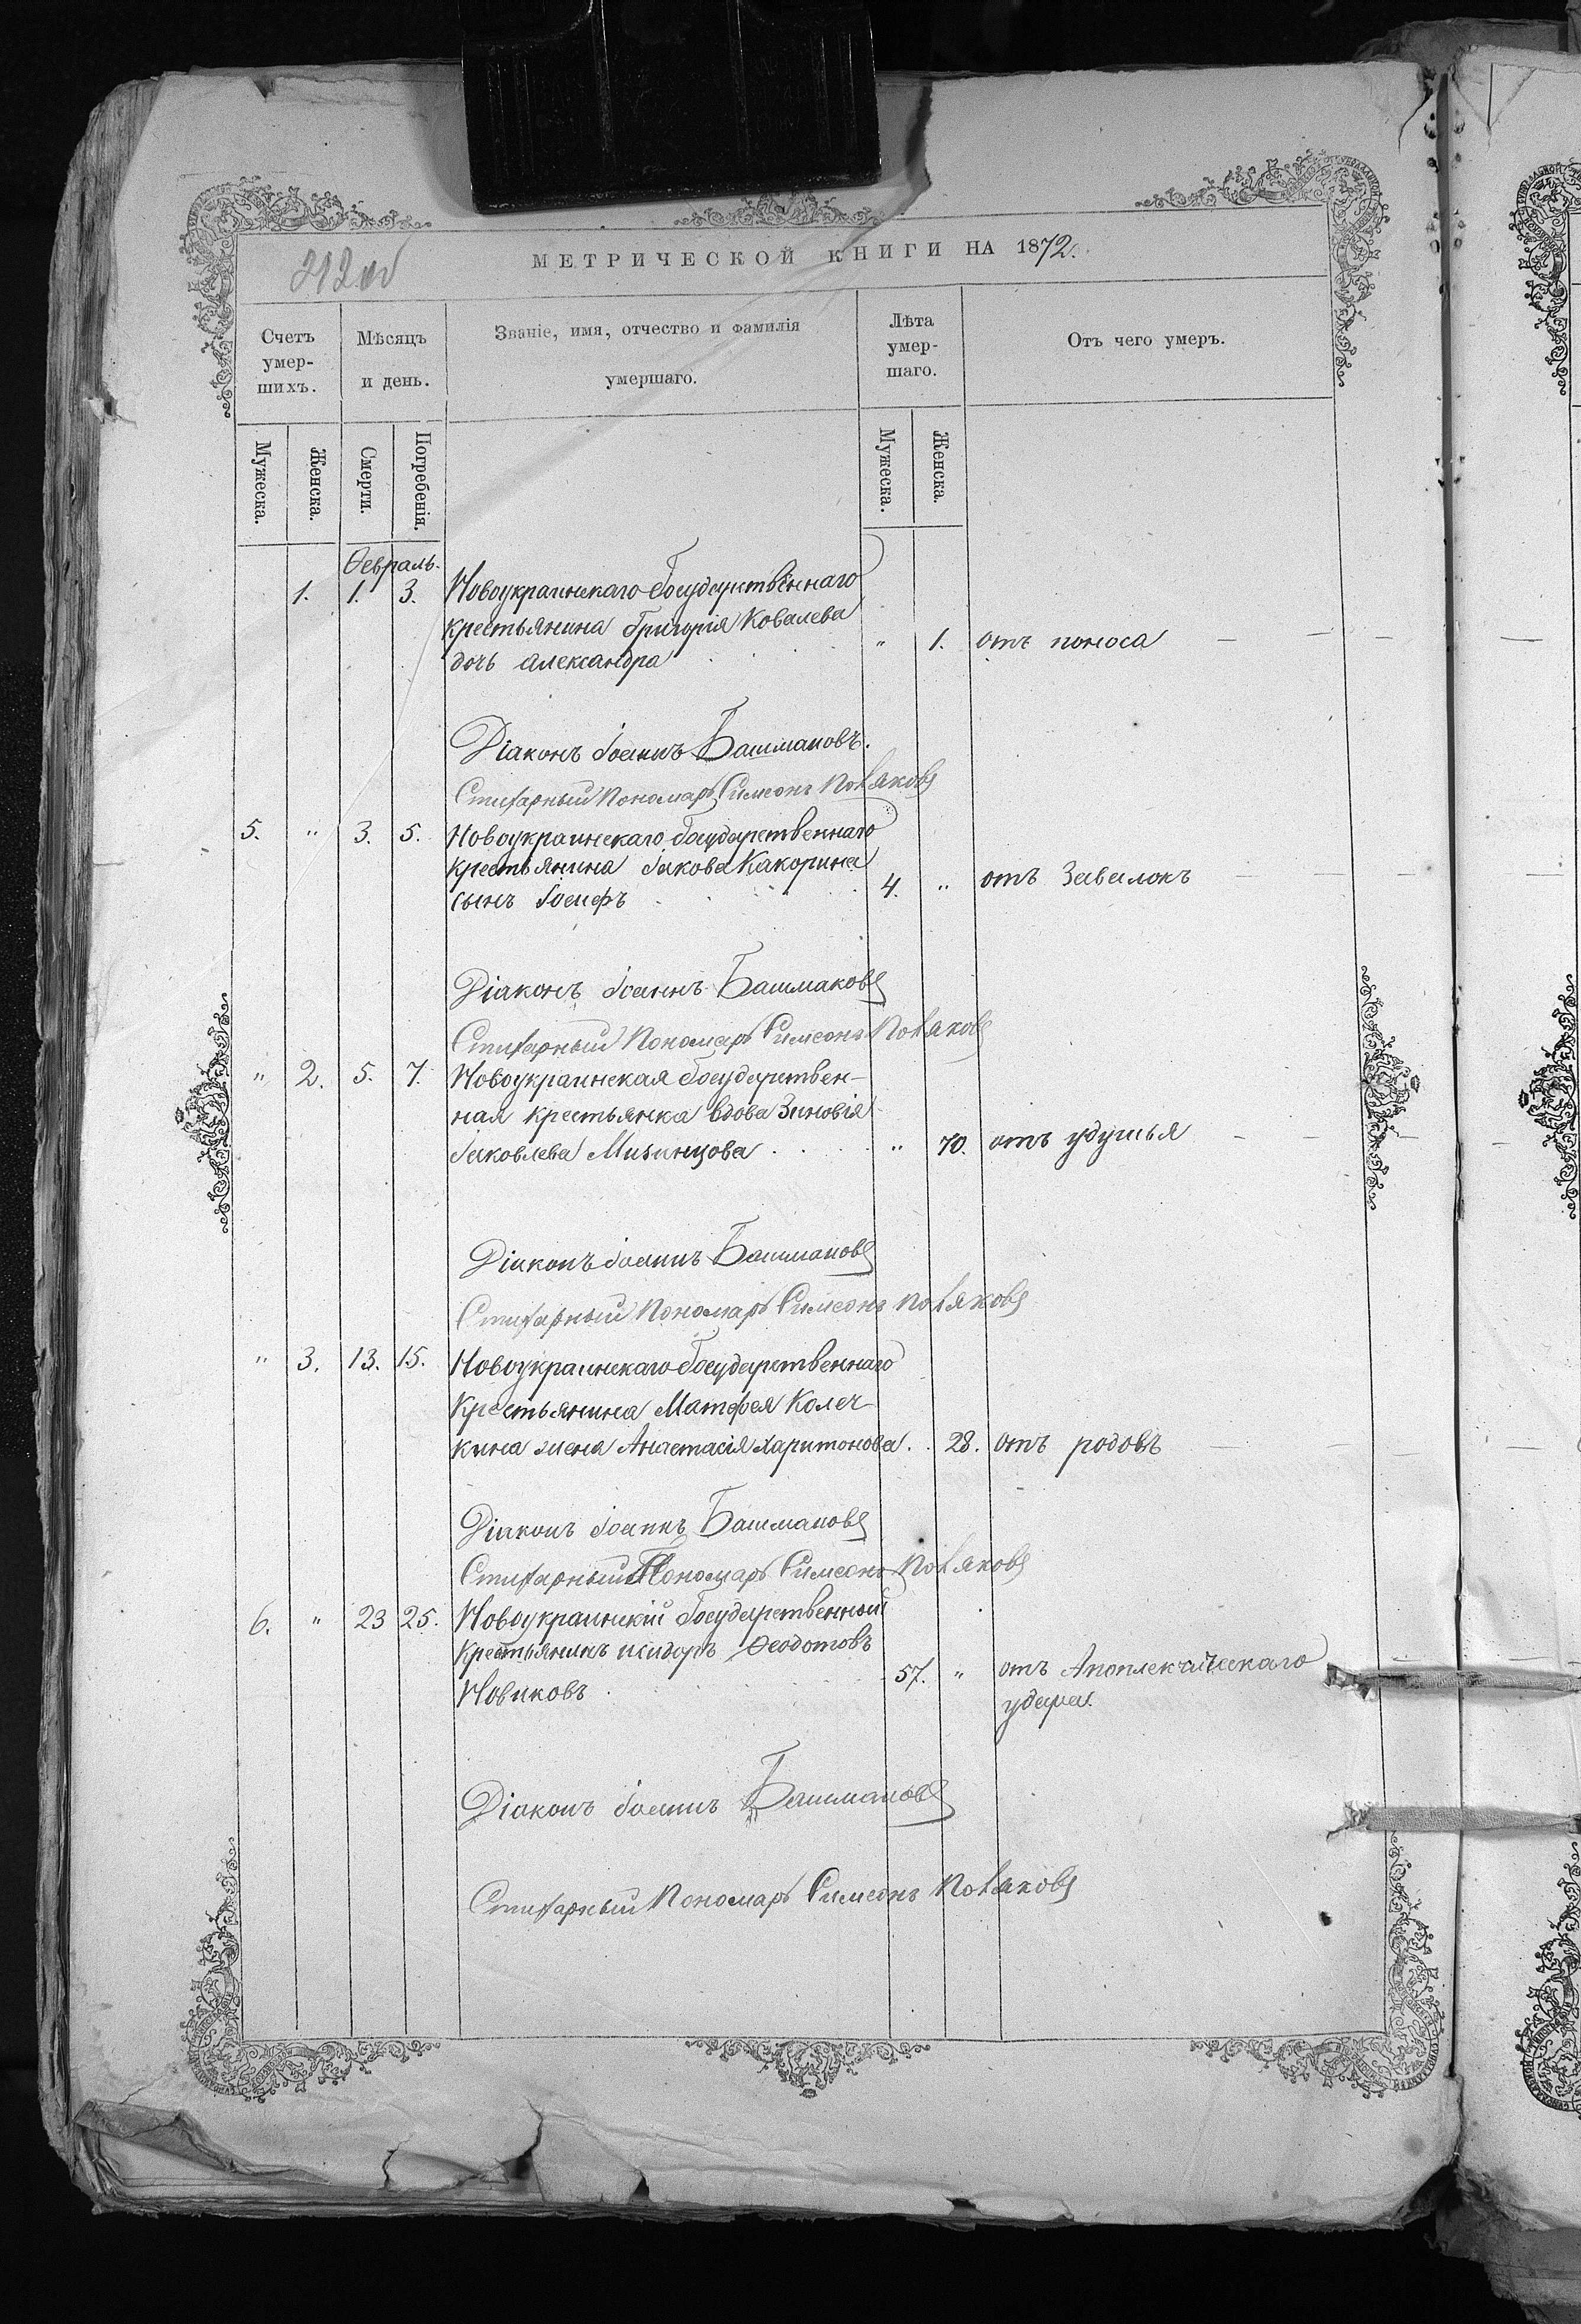 212 об
МЕТРИЧЕСКОЙ КНИГИ НА 1872.
Счетъ умер-шихъ.
Мѣсяцъ и день.
Званіе, имя, отчество и фамилія умершаго.
Лѣта умер-шаго.
Отъ чего умеръ.
Мужеска. Женска. Смерти. Погребенія. Мужеска. Женска.
Ѳевраль.
1. 1. 3. Новоукраинскаго Государственнаго
крестьянина Григорія Ковалева
дочь Александра " 1. отъ поноса
Діаконъ Іоаннъ Башмаковъ.
Стихарный Пономарь Симеонъ Поляковъ
5. " 3. 5. Новоукраинскаго Государственнаго
крестьянина Іакова Какорина
сынъ Іосифъ 4. " отъ Завалокъ
Діаконъ Іоаннъ Башмаковъ
Стихарный Пономарь Симеонъ Поляковъ
" 2. 5. 7. Новоукраинская Государствен-
ная крестьянка вдова Зиновія
Іаковлева Мизинцова " 70. отъ удушья
Діаконъ Іоаннъ Башмаковъ
Стихарный Пономарь Симеонъ Поляковъ
" 3. 13. 15. Новоукраинскаго Государственнаго
Крестьянина Матфея Колеч-
кина жена Анастасія Харитонова. 28. отъ родовъ
Діаконъ Іоаннъ Башмаковъ
Стихарный Пономарь Симеонъ Поляковъ
6. " 23 25. Новоукраинскій Государственный
Крестьянинъ Исидоръ Ѳеодотовъ
Новиковъ 57. " отъ Апоплексическаго
удара.
Діаконъ Іоаннъ Башмаковъ
Стихарный Пономарь Симеонъ Поляковъ